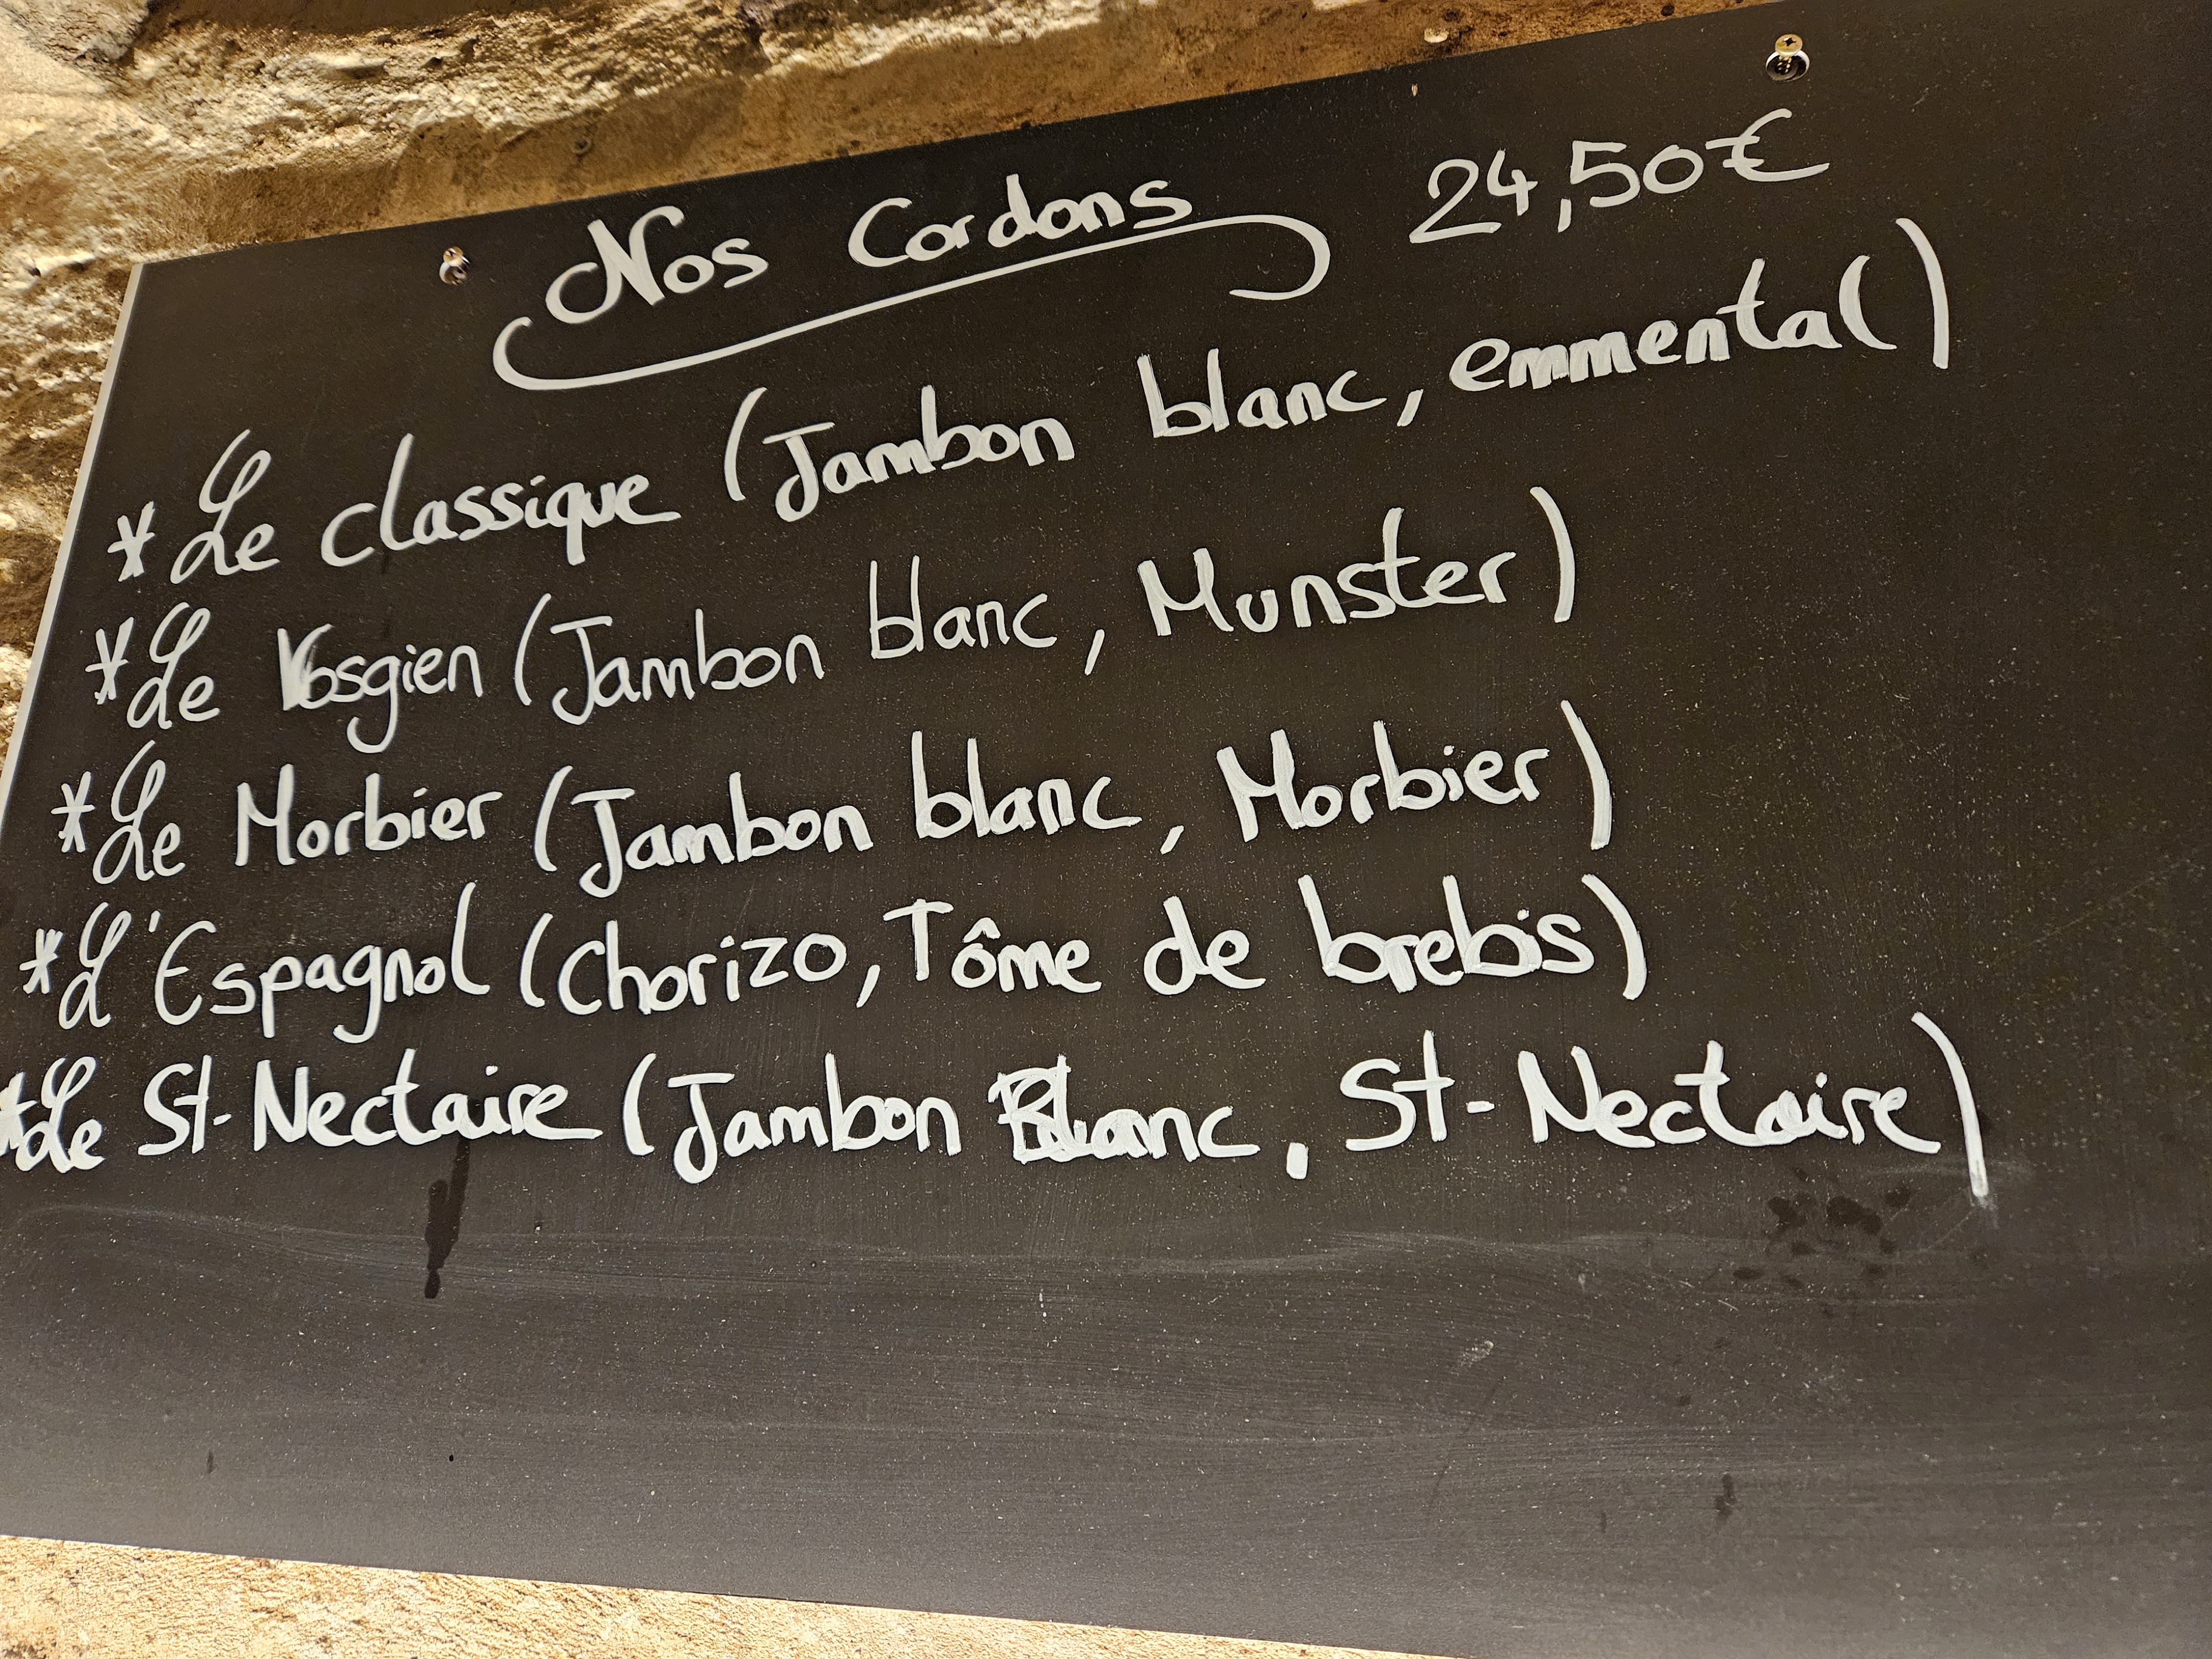 Nos Cordons 24,50€
* Le classique (Jambon blanc, emmental)
* Le Vosgien (Jambon blanc, Munster)
* Le Morbier (Jambon blanc, Morbier)
* L'Espagnol (Chorizo, Tôme de brebis)
* Le St-Nectaire (Jambon Blanc, St-Nectaire)